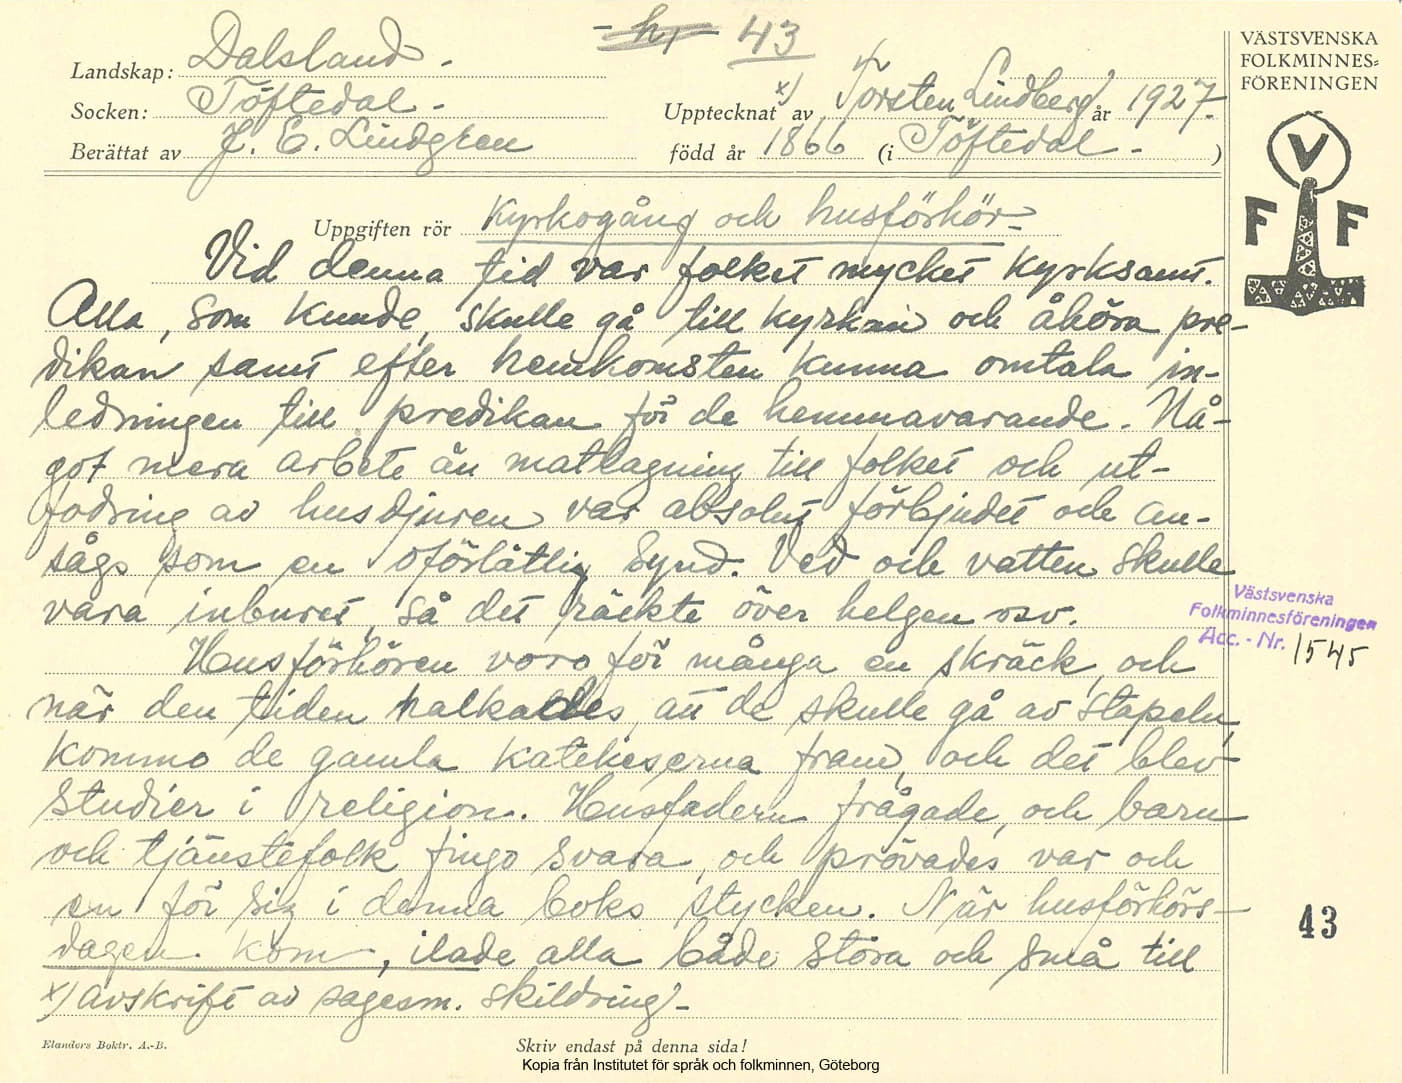 h, 43
VÄSTSVENSKA
FOLKMINNES=
FÖRENINGEN
V
F F
Landskap: Dalsland -
Socken: Töftedal -
Upptecknat x) av Torsten Lindberg år 1927.
Berättat av J. E. Lindgren
född år 1866 (i Töftedal - )
Uppgiften rör Kyrkogång och husförhör -
Vid denna tid var folket mycket kyrksamt.
Alla, som kunde, skulle gå till kyrkan och åhöra pre-
dikan samt efter hemkomsten kunna omtala in-
ledningen till predikan för de hemmavarande. Nå-
got mera arbete än matlagning till folket och ut-
fodring av husdjuren var absolut förbjudet och an-
sågs som en oförlåtlig synd. Ved och vatten skulle
vara inburet, så det räckte över helgen osv.
Husförhören voro för många en skräck, och
när den tiden nalkades, att de skulle gå av stapeln,
kommo de gamla katekeserna fram, och det blev
studier i religion. Husfadern frågade, och barn
och tjänstefolk fingo svara, och prövades var och
en för sig i denna boks stycken. När husförhörs-
dagen kom, ilade alla både stora och små till
x) avskrift av sagesm. skildring -
Västsvenska
Folkminnesföreningen
Acc. - Nr. 1545
43
Elanders Boktr. A.-B.
Skriv endast på denna sida!
Kopia från Institutet för språk och folkminnen, Göteborg